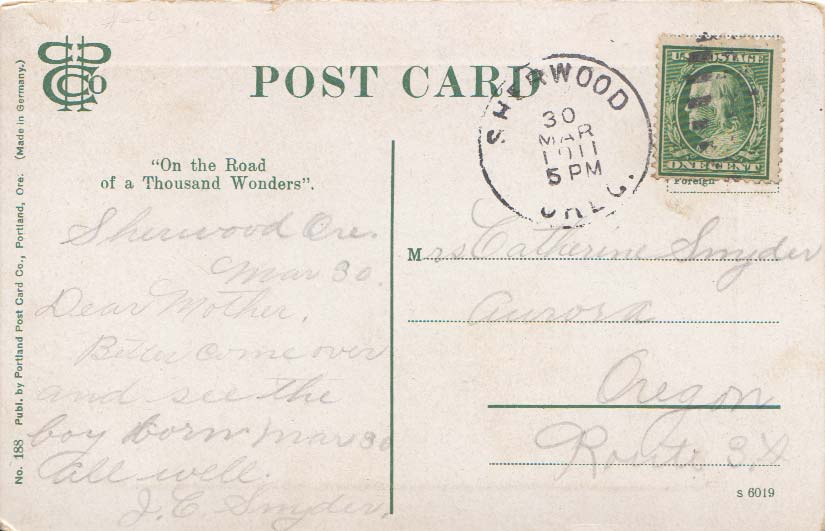 POST CARD
SHERWOOD
30
MAR
1911
5 PM
OREG.
U.S. POSTAGE
ONE CENT
Foreign
"On the Road
of a Thousand Wonders".
Sherwood Ore.
Mar 30.
Dear Mother,
Better come over
and see the
boy born Mar 30
All well.
J. C. Smyder,
Mrs Catherine Smyder
Aurora
Oregon
Route 3
S 6019
No. 188 Publ. by Portland Post Card Co., Portland, Ore. (Made in Germany.)